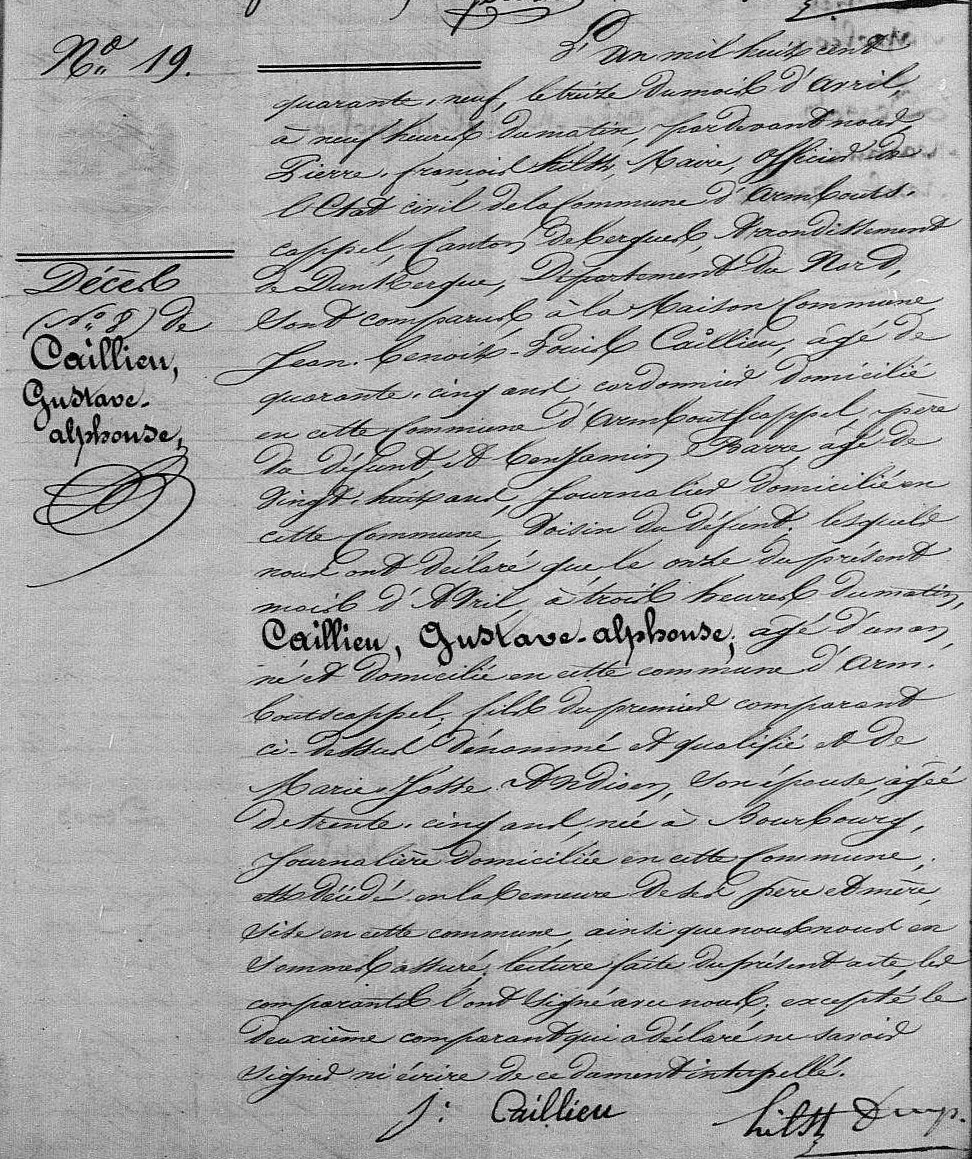 N.° 19.
L'an mil huit cent
quarante-neuf, le treize du mois d'avril,
à neuf heures du matin, pardevant nous,
Pierre-françois hilst, Maire, officier de
l'Etat civil de la Commune d'armbouts-
cappel, Canton de bergues, Arrondissement
de Dunkerque, Département du Nord,
Décès
(N.° 8) de
Caillieu,
Gustave-
alphonse,
sont comparus à la Maison Commune
Jean-benoit-Louis Caillieu, âgé de
quarante-cinq ans, cordonnier domicilié
en cette Commune d'armboutscappel, père
du défunt et benjamin Barre, âgé de
vingt-huit ans, Journalier domicilié en
cette Commune, voisin du défunt, lesquels
nous ont déclaré que le onze du présent
mois d'Avril, à trois heures du matin,
Caillieu, Gustave-alphonse, âgé d'un an,
né et domicilié en cette commune d'arm-
boutscappel, fils du premier comparant
ci-dessus dénommé et qualifié et de
Marie-Josse, son épouse, âgée
de trente-cinq ans, née à Bourbourg,
Journalière domiciliée en cette Commune,
est décédé en la demeure de ses père et mère,
sise en cette commune, ainsi que nous nous en
sommes assuré, lecture faite du présent acte, les
comparants l'ont signé avec nous, excepté le
deuxième comparant qui a déclaré ne savoir
signer ni écrire de ce dument interpellé.
J: Caillieu
hilst